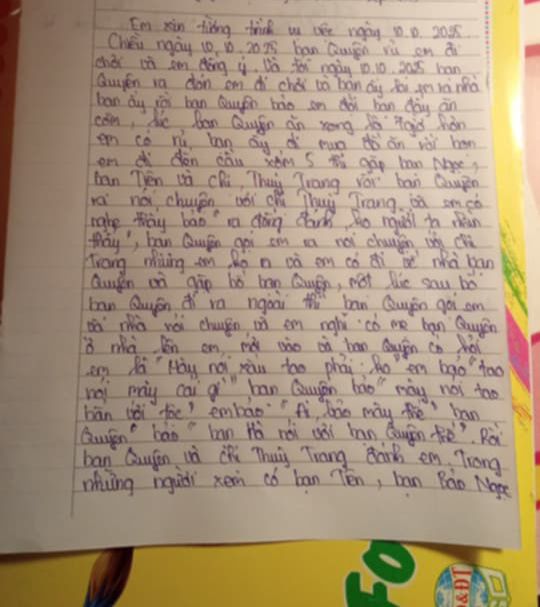 Em xin tường trình vụ việc ngày 10.10.2025.
Chiều ngày 10.10.2025 bạn Quyên rủ em đi
chơi và em đồng ý. Và tới ngày 10.10.2025 bạn
Quyên ra đón em đi chơi và bạn ấy lai em ra nhà
bạn ấy rồi bạn Quyên bảo em đợi bạn ấy ăn
cơm, lúc bạn Quyên ăn xong là 7 giờ hơn
em có rủ, bạn ấy đi mua đồ ăn rồi bọn
em đi đến cầu xóm 5 thì gặp bạn Ngọc,
bạn Tiên và chị Thuỳ Trang rồi bạn Quyên
ra nói chuyện với chị Thuỳ Trang và em có
nghe thấy bảo " ra đồng đánh, ko người ta nhìn
thấy", bạn Quyên gọi em ra nói chuyện với chị
Trang nhưng em ko ra và em có đi về nhà bạn
Quyên và gặp bố bạn Quyên, một lúc sau bố
bạn Quyên đi ra ngoài thì bạn Quyên gọi em
vào nhà nói chuyện và em nghĩ có mẹ bạn Quyên
ở nhà lên em mới vào và bạn Quyên có hỏi
em là "Mày nói xấu tao phải ko" em bảo "tao
nói mày cái gì" bạn Quyên bảo "mày nói tao
bẩn với tóc" em bảo "Ai bảo mày thế" bạn
Quyên bảo "bạn Hà nói với bạn Quyên thế". Rồi
bạn Quyên và chị Thuỳ Trang đánh em Trong
những người xem có bạn Tiên, bạn Bảo Ngọc
FO
&ĐT